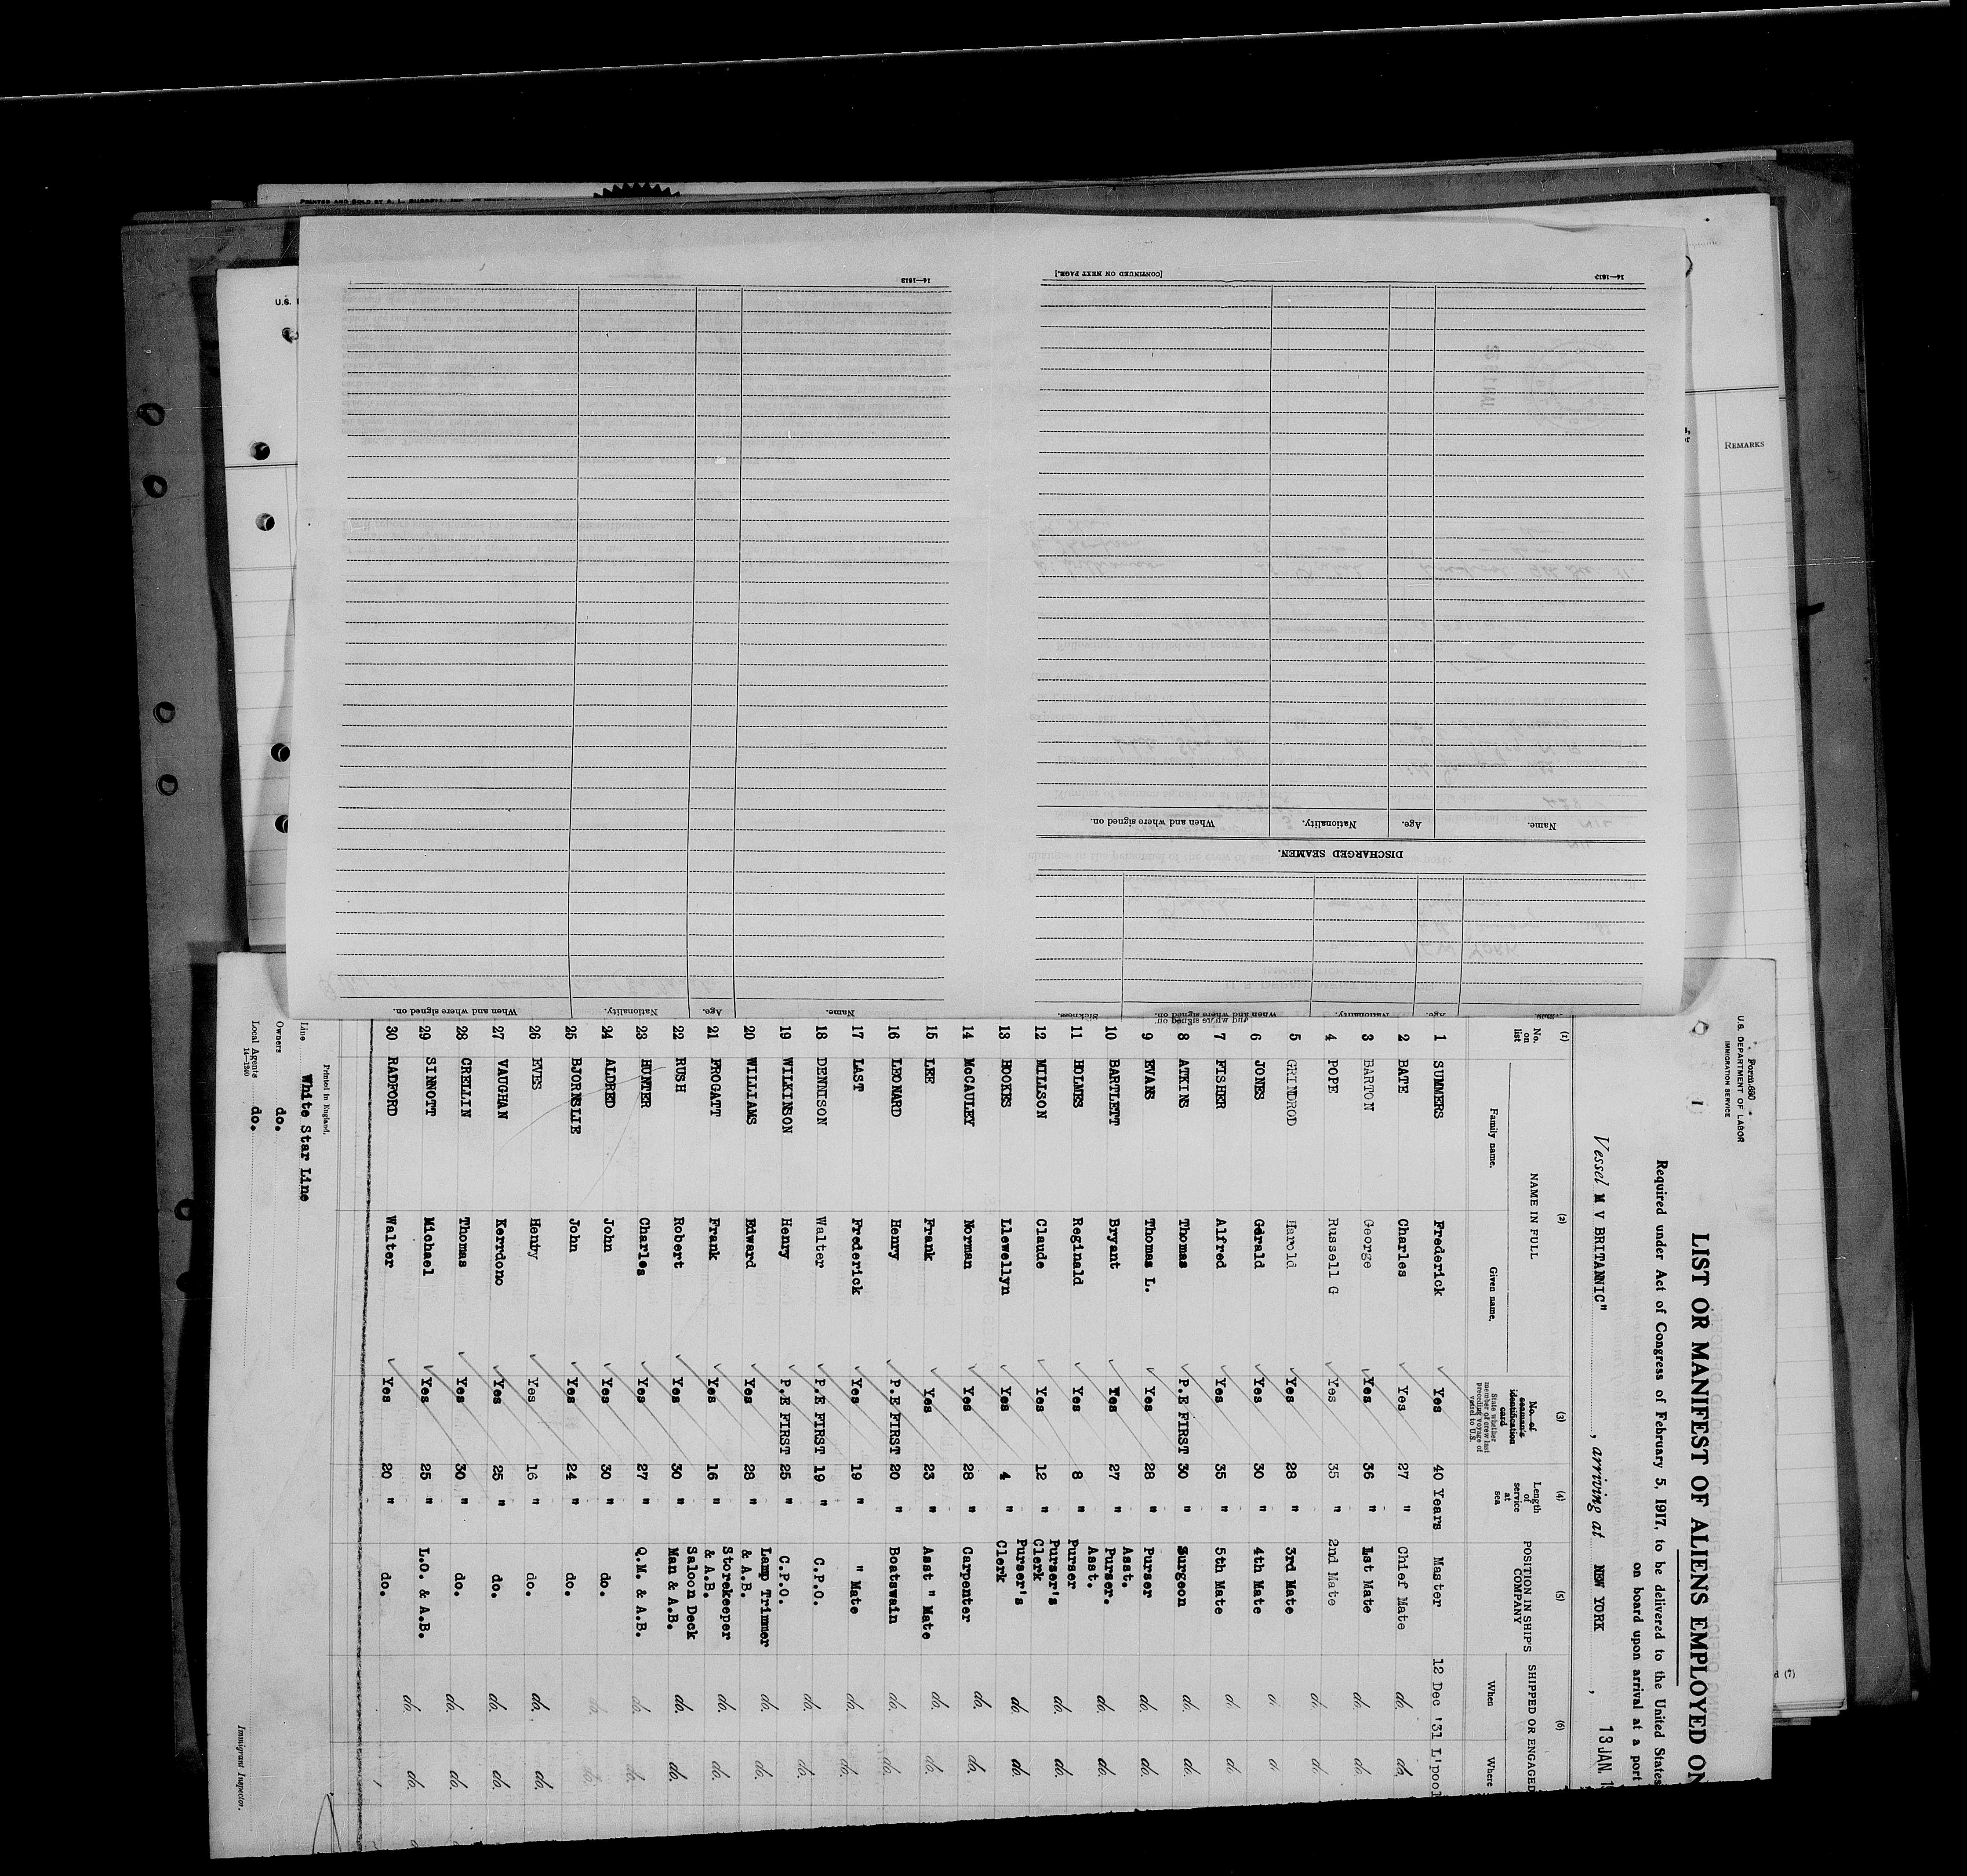 PRINTED AND SOLD BY A. L. RUSSELL, INC.
U.S.
REMARKS
[CONTINUED ON NEXT PAGE.]
14—1613
DISCHARGED SEAMEN.
Name. Age. Nationality. When and where signed on.
Name. Age. Nationality. When and where signed on. Sickness.
Name. Age. Nationality. When and where signed on.
Form 680
U.S. DEPARTMENT OF LABOR
IMMIGRATION SERVICE
LIST OR MANIFEST OF ALIENS EMPLOYED ON
Required under Act of Congress of February 5, 1917, to be delivered to the United States
on board upon arrival at a port
Vessel M V BRITANNIC", arriving at NEW YORK, 13 JAN. 1
(1) (2) (3) (4) (5) (6)
No. on list NAME IN FULL Family name. Given name. No. of seaman's identification card State whether member of crew last preceding voyage of vessel to U.S. Length of service at sea POSITION IN SHIP'S COMPANY SHIPPED OR ENGAGED When Where
1 SUMMERS Frederick Yes 40 Years Master 12 Dec '31 L'pool
2 BATE Charles Yes 27 " Chief Mate do. do.
3 BARTON George Yes 36 " 1st Mate do. do.
4 POPE Russell G Yes 35 " 2nd Mate d. d.
5 GRINDROD Harold Yes 28 " 3rd Mate
6 JONES Gerald Yes 30 " 4th Mate d. d.
7 FISHER Alfred Yes 35 " 5th Mate d. do.
8 ATKINS Thomas P.E FIRST 30 " Surgeon do. do.
9 EVANS Thomas L. Yes 28 " Purser do. do.
10 BARTLETT Bryant Yes 27 " Asst. Purser. do. do.
11 HOLMES Reginald Yes 8 " Asst. Purser do. do.
12 MILSON Claude Yes 12 " Purser's Clerk do. do.
13 HOOKES Llewellyn Yes 4 " Purser's Clerk do. do.
14 McCAULEY Norman Yes 28 " Carpenter do. do.
15 LEE Frank Yes 23 " Asst " Mate do. do.
16 LEONARD Henry P.E FIRST 20 " Boatswain do. do.
17 LAST Frederick Yes 19 " " Mate do. do.
18 DENNISON Walter P.E FIRST 19 " C.P.O. do. do.
19 WILKINSON Henry P.E FIRST 25 " C.P.O. do. do.
20 WILLIAMS Edward Yes 28 " Lamp Trimmer & A.B. do. do.
21 FROGATT Frank Yes 16 " Storekeeper & A.B. do. do.
22 RUSH Robert Yes 30 " Saloon Deck Man & A.B. do. do.
23 HUNTER Charles Yes 27 " Q.M. & A.B. do. do.
24 ALDRED John Yes 30 " do. do. do.
25 BJORNSLIE John Yes 24 " do.
26 EVES Henry Yes 16 " do. do. do.
27 VAUGHAN Kerrdono Yes 25 " do. do. do.
28 CRELLIN Thomas Yes 30 " do. do. do.
29 SINNOTT Michael Yes 25 " L.O. & A.B. do. do.
30 RADFORD Walter Yes 20 " do.
Printed in England.
Line White Star Line
Owners do.
Local Agents do.
14—1240
Immigrant Inspector.
d (7)